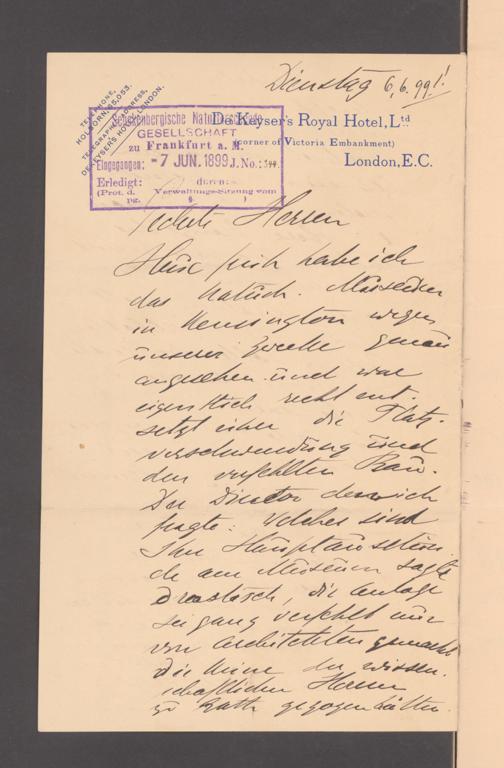 Dienstag 6.6.99!
TELEPHONE,
HOLBORN, 65,053.
TELEGRAPHIC ADDRESS,
DE KEYSER'S HOTEL LONDON.
De Keyser's Royal Hotel, Ltd
(corner of Victoria Embankment)
London, E.C.
Senckenbergische Naturforschende
GESELLSCHAFT
zu Frankfurt a. M.
Eingegangen: -7 JUN. 1899 J. No.: 344.
Erledigt: durch:
(Prot. d. Verwaltungs-Sitzung vom
pg. §. )
Herren
Heute früh habe ich
das naturh. Museum
in Kensington wegen
unserer Zwecke genau
angesehen und war
eigentlich recht ent-
setzt über die Platz-
verschwendung und
den verfehlten Bau.
Der Director den ich
fragte: welches sind
Ihre Hauptaus
am Museum sagte
Drastisch, die Anlage
sei ganz verfehlt nur
von Architekten gemacht
die keine der wissen-
schaftlichen Herren
zu Rathe gezogen hätten.